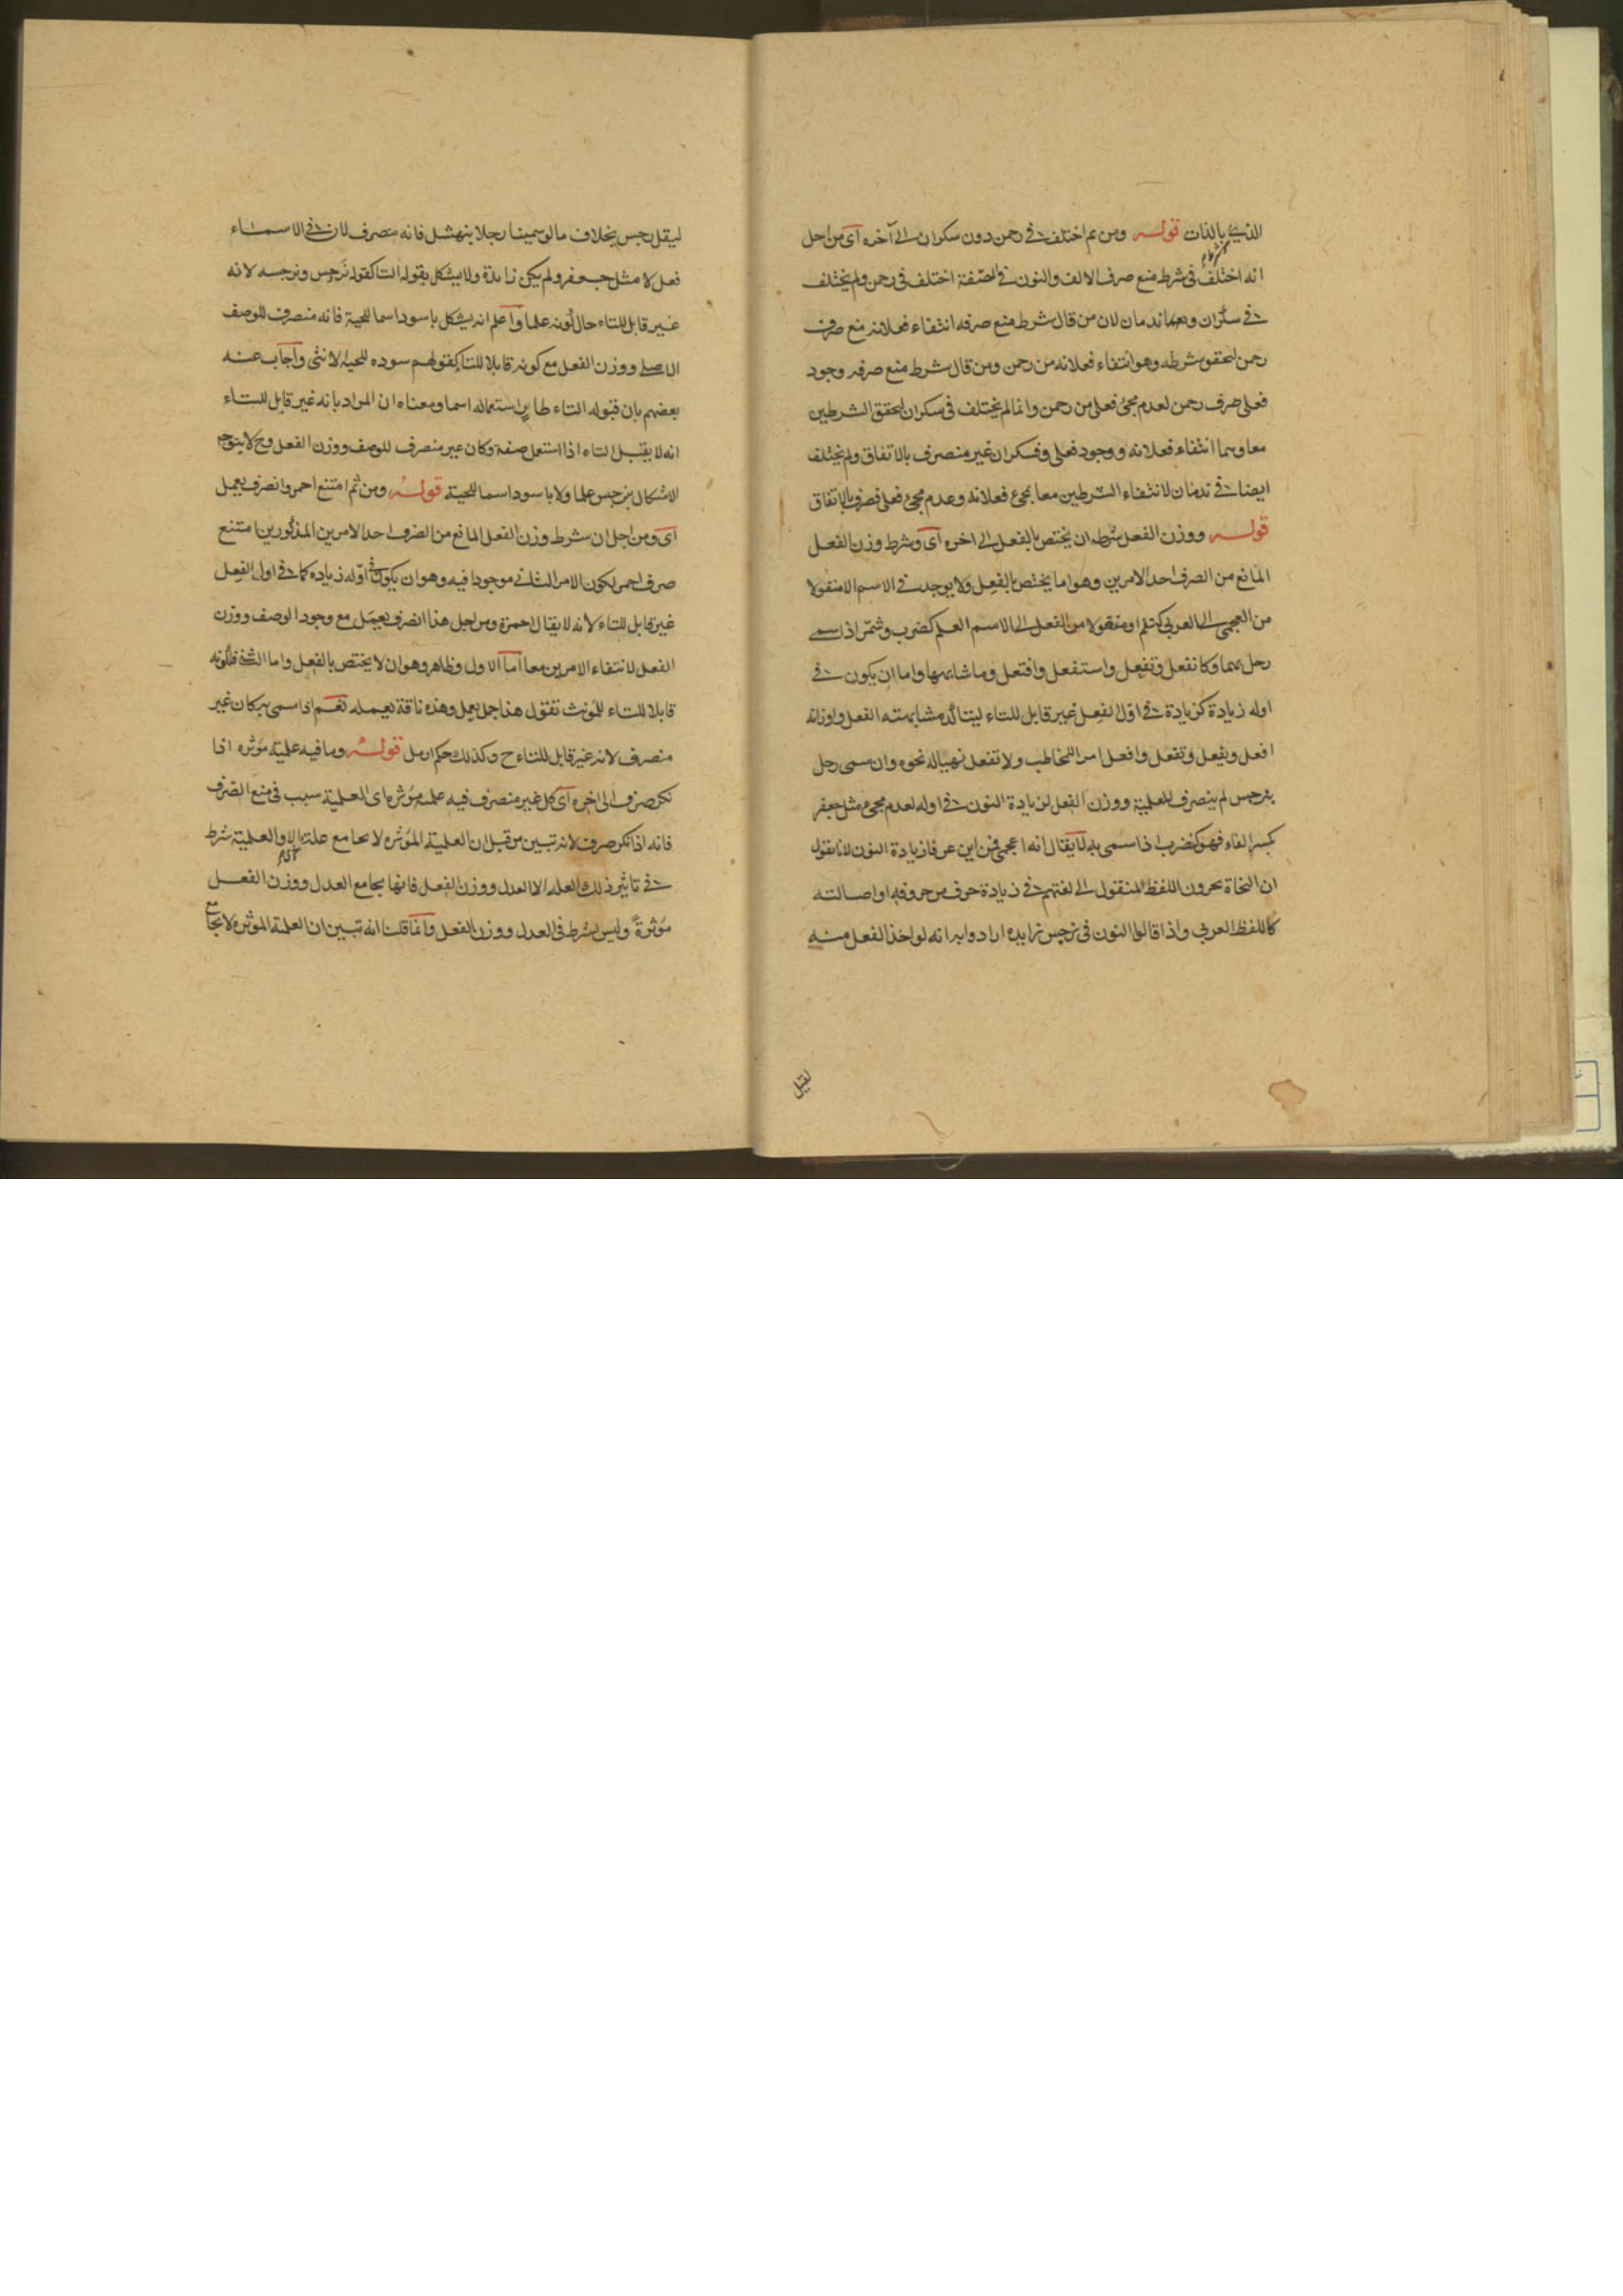 بالذات قوله ومن ثم اختلف في رحمن دون سكران الى آخره اى من اجل
انه اختلف في شرط منع صرف الالف والنون في الصفة اختلف في رحمن ولم يختلف
في سكران وندمان لان من قال شرط منع صرفه انتفاء فعلانه منع صرف
رحمن لتحقق شرطه وهو انتفاء فعلانه من رحمن ومن قال شرط منع صرفه وجود
فعلى صرف رحمن لعدم مجئ فعلى من رحمن وانما لم يختلف في سكران لتحقق الشرطين
معا وهما انتفاء فعلانه ووجود فعلى فسكران غير منصرف بالاتفاق ولم يختلف
ايضا في ندمان لانتفاء الشرطين معا بمجئ فعلانه وعدم مجئ فعلى فصرف بالاتفاق
قوله ووزن الفعل شرطه ان يختص بالفعل الى اخره اى وشرط وزن الفعل
المانع من الصرف احد الامرين وهو اما يختص بالفعل ولا يوجد في الاسم الا منقولا
من العجمى الى العربى كبقم او منقولا من الفعل الى الاسم العلم كضرب وشمّر اذا سمى
رجل بهما وكانفعل وتفعل واستفعل وافتعل وما شابهها واما ان يكون في
اوله زيادة كزيادة في اول الفعل غير قابل للتاء ليتاكد مشابهته الفعل واوزانه
افعل ويفعل وتفعل وافعل امر المخاطب ولا تفعل نهيا له نحوه وان سمى رجل
بنرجس لم ينصرف للعلمية ووزن الفعل لزيادة النون في اوله لعدم مجئ مثل جعفر
بكسر الفاء فهو كنضرب اذا سمى به لا يقال انه اعجمى فمن اين عرفا زيادة النون لانا نقول
ان النحاة يجرون اللفظ المنقول الى لغتهم في زيادة حرف من حروفه او اصالته
كاللفظ العربي واذا قالوا النون في نرجس زايده ارادوا به انه لو اخذ الفعل منه
لقيل
ليقل رجس بخلاف ما لو سمينا رجلا بنهشل فانه منصرف لان في الاسماء
فعللا مثل جعفر ولم يكن زايدة ولا يشكل بقوله التا كقوله نرجس ونرجسه لانه
غير قابل للتاء حال كونه علما واعلم انه يشكل باسود اسما للحية فانه منصرف للوصف
الاصلى ووزن الفعل مع كونه قابلا للتا كقولهم سوده للحية الانثى واجاب عنه
بعضهم بان قبوله التاء طار باستعماله اسما ومعناه ان المراد بانه غير قابل للتاء
انه لا يقبل التاء اذا استعمل صفة وكان غير منصرف للوصف ووزن الفعل وح لا يتوجه
الاشكال بنرجس علما ولا باسود اسما للحية قوله ومن ثم امتنع احمر وانصرف يعمل
اى ومن اجل ان شرط وزن الفعل المانع من الصرف احد الامرين المذكورين امتنع
صرف احمر لكون الامر الثاني موجودا فيه وهو ان يكون في اوله زياده كما في اول الفعل
غير قابل للتاء لانه لا يقال احمرة ومن اجل هذا انصرف يعمل مع وجود الوصف ووزن
الفعل لانتفاء الامرين معا اما الاول فظاهر وهو ان لا يختص بالفعل واما الثاني فلكونه
قابلا للتاء للمونث تقول هذا جمل يعمل وهذه ناقة يعمله نعم اذا سمى به كان غير
منصرف لانه غير قابل للتاء ح وكذلك حكم ارمل قوله وما فيه علمية مؤثره اذا
نكر صرف الى اخره اى كل غير منصرف فيه علمية مؤثره اى العلمية سبب في منع الصرف
فانه اذا نكر صرف لانه تبين من قبل ان العلمية المؤثره لا تجامع علة الا والعلمية شرط
في تاثير ذلك العله الا العدل ووزن الفعل فانها تجامع العدل ووزن الفعل
مؤثرة وليس بشرط في العدل ووزن الفعل وانما قلنا انه تبين ان العلمية المؤثره لا تجامع